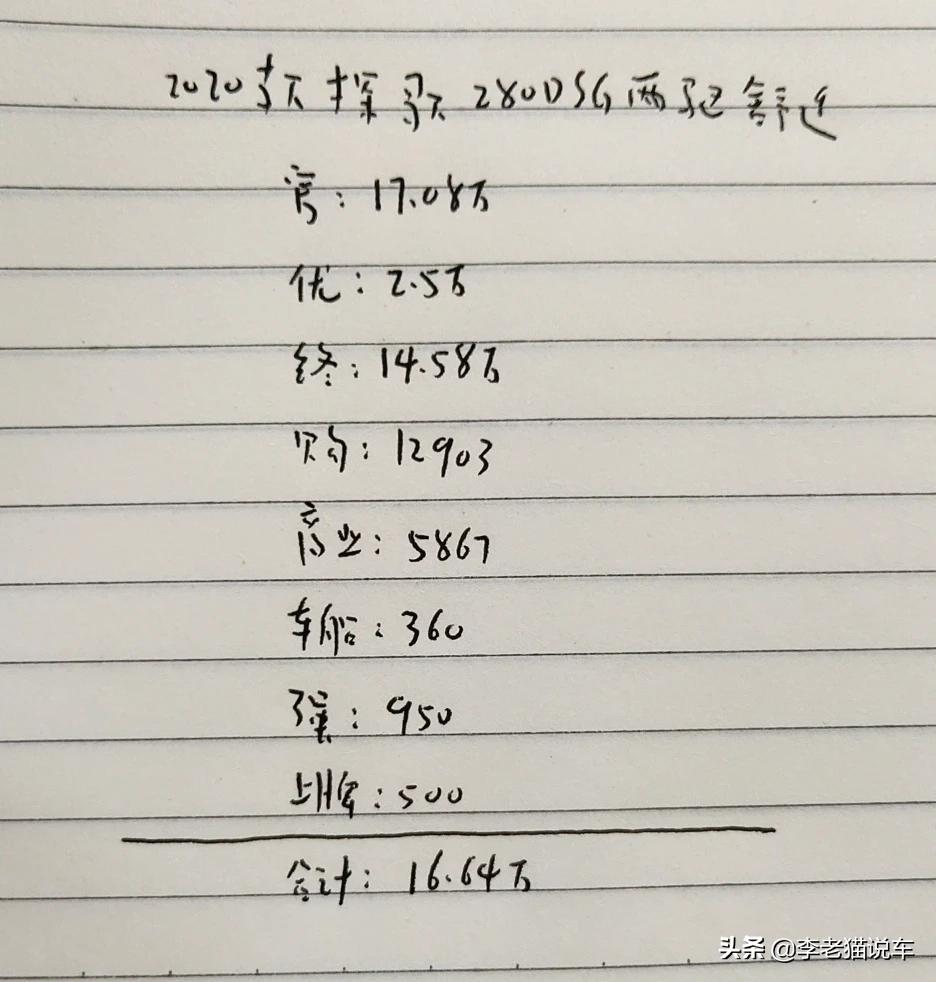 2020款 探歌 280DSG 两驱舒适
官：17.08万
优：2.5万
终：14.58万
购：12903
商业：5867
车船：360
强：950
上牌：500
合计：16.64万
头条 @李老猫说车